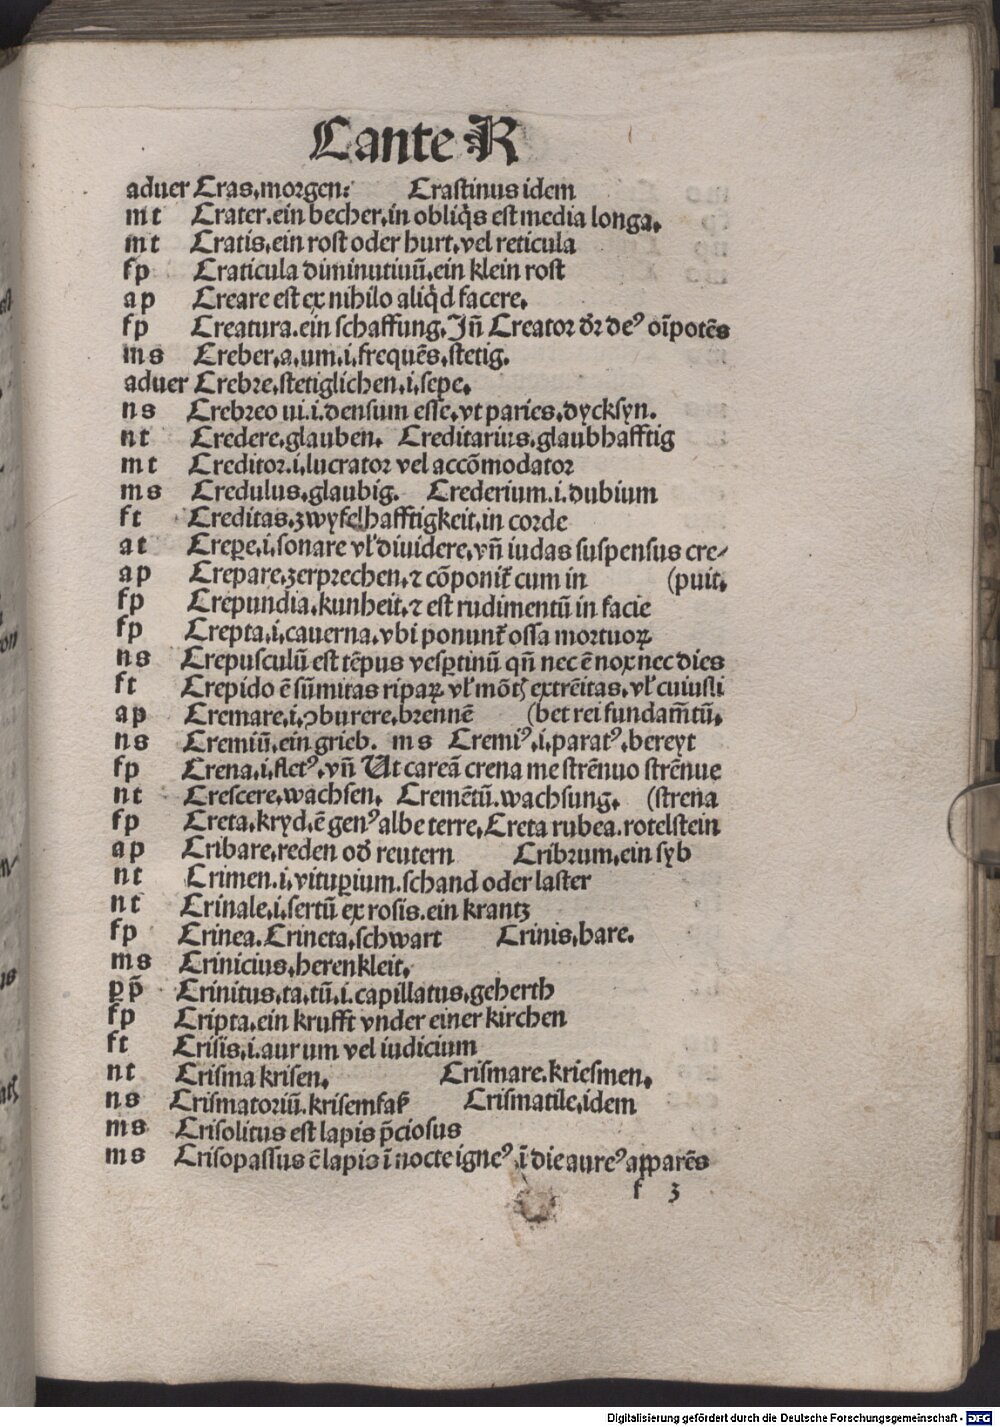 C ante R
aduer Cras.morgen: Crastinus idem
mt Crater.ein becher.in obliq̃s est media longa.
mt Cratis.ein rost oder hurt.vel reticula
fp Craticula diminutiuũ.ein klein rost
ap Creare est ex nihilo aliq̃d facere.
fp Creatura.ein schaffung.Iñ Creator d̃r deꝰ oĩpotẽs
ms Creber.a.um.i.frequẽs.stetig.
aduer Crebre.stetiglichen.i.sepe.
ns Crebreo ui.i.densum esse.vt paries.dycksyn.
nt Credere.glauben. Creditarius.glaubhafftig
mt Creditor.i.lucrator vel accõmodator
ms Credulus.glaubig. Crederium.i.dubium
ft Creditas.zwyfelhafftigkeit.in corde
at Creꝑe.i.sonare vl̃ diuidere.vñ iudas suspensus cre⸗
ap Crepare.zerprechen.⁊ cõponit̃ cum in (puit.
fp Crepundia.kunheit.⁊ est rudimentũ in facie
fp Crepta.i.cauerna.vbi ponunt̃ ossa mortuoꝝ
ns Crepusculũ est tẽpus vesꝑtinũ qñ nec ẽ nox nec dies
ft Crepido ẽ sũmitas ripaꝝ vl̃ mõtꝭ extrẽitas.vl̃ cuiusli
ap Cremare.i.ꝯburere.brennẽ (bet rei fundam̃tũ.
ns Cremiũ.ein grieb. ms Cremiꝰ.i.paratꝰ.bereyt
fp Crena.i.fletꝰ.vñ Ut careã crena me strẽnuo strẽnue
nt Crescere.wachsen. Cremẽtũ.wachsung. (strena
fp Creta.kryd.ẽ genꝰ albe terre.Creta rubea.rotelstein
ap Cribare.reden od̃ reutern Cribrum.ein syb
nt Crimen.i.vituꝑium.schand oder laster
nt Crinale.i.sertũ ex rosis.ein krantz
fp Crinea.Crineta.schwart Crinis.hare.
ms Crinicius.herenkleit.
ꝑp̃ Crinitus.ta.tũ.i.capillatus.geherth
fp Cripta.ein krufft vnder einer kirchen
ft Crisis.i.aurum vel iudicium
nt Crisma krisen. Crismare.kriesmen.
ns Crismatoriũ.krisemfaß Crismatile.idem
ms Crisolitus est lapis p̃ciosus
ms Crisopassus ẽ lapis ĩ nocte igneꝰ ĩ die aureꝰ apparẽs
f 3
Digitalisierung gefördert durch die Deutsche Forschungsgemeinschaft - DFG